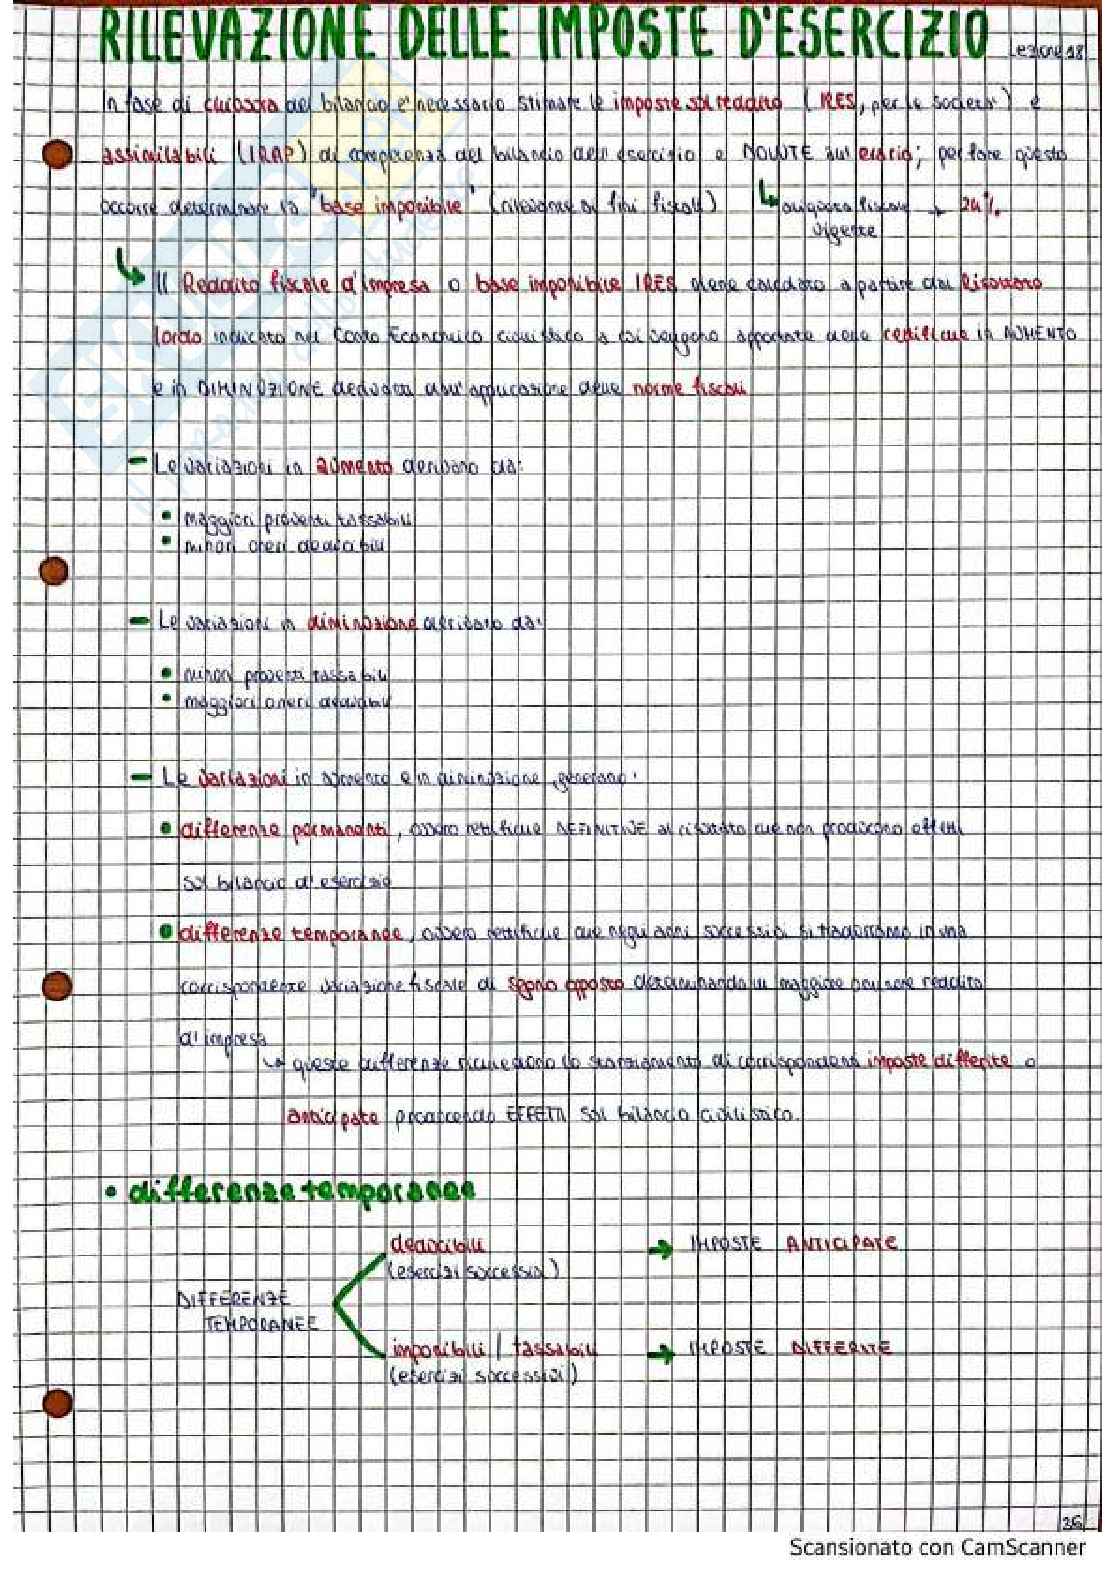 RILEVAZIONE DELLE IMPOSTE D'ESERCIZIO Lezione 18
In fase di chiusura del bilancio e' necessario stimare le imposte sul reddito (IRES, per le societa') e
assimilabili (IRAP) di competenza del bilancio dell'esercizio e DOVUTE all'erario; per fare questo
occorre determinare la "base imponibile" (rilevazione ai fini fiscali)
aliquota fiscale → 24%
vigente
Il Reddito fiscale d'impresa o base imponibile IRES viene calcolato a partire dal Risultato
lordo indicato nel Conto Economico civilistico a cui vengono apportate delle rettifiche in AUMENTO
e in DIMINUZIONE dedotta dall'applicazione delle norme fiscali
- Le variazioni in aumento derivano da:
• maggiori proventi tassabili
• minori oneri deducibili
- Le variazioni in diminuzione derivano da:
• minori proventi tassabili
• maggiori oneri deducibili
- Le variazioni in aumento e in diminuzione, generano:
• differenze permanenti, ovvero rettifiche DEFINITIVE al risultato che non producono effetti
sul bilancio d'esercizio
• differenze temporanee, ovvero rettifiche che negli anni successivi si tradurranno in una
corrispondente variazione fiscale di segno opposto determinando un maggiore o minore reddito
d'impresa
↳ queste differenze richiedono lo stanziamento di corrispondenti imposte differite o
anticipate producendo EFFETTI sul bilancio civilistico.
• differenze temporanee
deducibili → IMPOSTE ANTICIPATE
(esercizi successivi)
DIFFERENZE
TEMPORANEE
imponibili / tassabili → IMPOSTE DIFFERITE
(esercizi successivi)
26
Scansionato con CamScanner